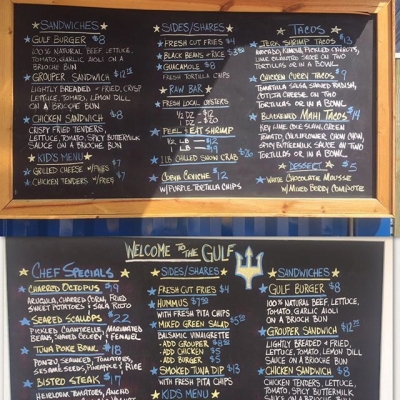 SANDWICHES
GULF BURGER $8
100% NATURAL BEEF, LETTUCE,
TOMATO, GARLIC AIOLI ON A
BRIOCHE BUN
GROUPER SANDWICH $12
LIGHTLY BREADED + FRIED, CRISP
LETTUCE, TOMATO, LEMON DILL
ON A BRIOCHE BUN
CHICKEN SANDWICH $8
CRISPY FRIED TENDERS,
LETTUCE, TOMATO, SPICY BUTTERMILK
SAUCE ON A BRIOCHE BUN
KID'S MENU
GRILLED CHEESE W/FRIES $7
CHICKEN TENDERS W/FRIES $7
SIDES/SHARES
FRESH CUT FRIES $4
BLACK BEANS + RICE
GUACAMOLE $8
FRESH TORTILLA CHIPS
RAW BAR
FRESH LOCAL OYSTERS
1/2 DZ - $12
DZ - $20
PEEL + EAT SHRIMP
1/2 LB $12
1 LB $19
1 LB CHILLED SNOW CRAB $20
COBIA CEVICHE $12
W/PURPLE TORTILLA CHIPS
TACOS
JERK SHRIMP TACOS $13
AVOCADO, KIMCHI, PICKLED CARROTS,
LIME ON TWO
TORTILLAS OR IN A BOWL
CHICKEN CURRY TACOS $9
SALSA, SHAVED RADISH,
COTIJA CHEESE ON TWO
TORTILLAS OR IN A BOWL
BLACKENED MAHI TACOS $14
KEY LIME COLE SLAW, GREEN
TOMATO, CAULIFLOWER CHOW CHOW,
SPICY BUTTERMILK SAUCE ON TWO
TORTILLAS OR IN A BOWL
DESSERT $5
WHITE CHOCOLATE MOUSSE
W/MIXED BERRY COMPOTE
WELCOME TO THE GULF
CHEF SPECIALS
CHARRED OCTOPUS $19
ARUGULA, CHARRED CORN, FRIED
SWEET POTATOES + SALSA ROJO
SEARED SCALLOPS $22
PICKLED CHANTERELLE, MARINATED
BEANS, SHAVED CELERY + FENNEL
TUNA POKE BOWL $18
PONZU, SEAWEED, TOMATOES,
SESAME SEEDS, PINEAPPLE + RICE
BISTRO STEAK $17
HEIRLOOM TOMATOES, ANCHO
SIDES/SHARES
FRESH CUT FRIES $4
HUMMUS
WITH FRESH PITA CHIPS
MIXED GREEN SALAD
BALSAMIC VINAIGRETTE
- ADD GROUPER $8
- ADD CHICKEN $5
- ADD BURGER $5
SMOKED TUNA DIP $13
WITH FRESH PITA CHIPS
KIDS MENU
SANDWICHES
GULF BURGER $8
100% NATURAL BEEF, LETTUCE,
TOMATO, GARLIC AIOLI
ON A BRIOCH BUN
GROUPER SANDWICH $12
LIGHTLY BREADED + FRIED,
LETTUCE, TOMATO, LEMON DILL
SAUCE ON A BRIOCH BUN
CHICKEN SANDWICH $8
CHICKEN TENDERS, LETTUCE,
TOMATO, SPICY BUTTERMILK
SAUCE ON A BRIOCH BUN